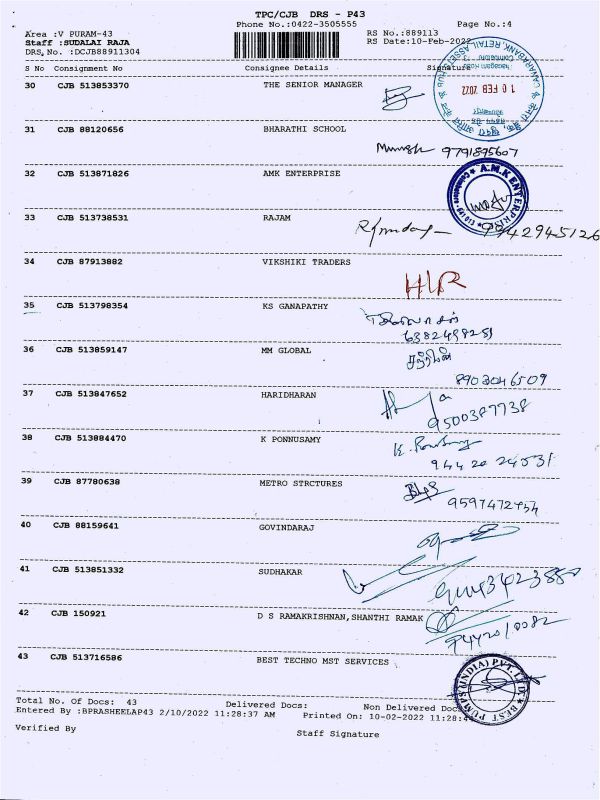 TPC/CJB DRS - P43
Phone No.:0422-3505555
Page No.:4
Area :V PURAM-43
RS No.:889113
Staff :SUDALAI RAJA
RS Date:10-Feb-2022
DRS,No.:DCJB88911304
S No Consignment No Consignee Details Signature
30 CJB 513853370 THE SENIOR MANAGER
CANARABANK, RETAIL ASSET HUB
10 FEB 2022
31 CJB 88120656 BHARATHI SCHOOL
9791895607
32 CJB 513871826 AMK ENTERPRISE
A.M.K ENTERPRISE
33 CJB 513738531 RAJAM
9942945126
34 CJB 87913882 VIKSHIKI TRADERS
35 CJB 513798354 KS GANAPATHY
6382498251
36 CJB 513859147 MM GLOBAL
8903046509
37 CJB 513847652 HARIDHARAN
9500387738
38 CJB 513884470 K PONNUSAMY
94420 24531
39 CJB 87780638 METRO STRCTURES
40 CJB 88159641 GOVINDARAJ
41 CJB 513851332 SUDHAKAR
42 CJB 150921 D S RAMAKRISHNAN,SHANTHI RAMAK
9442010082
43 CJB 513716586 BEST TECHNO MST SERVICES
BEST PUMPS (INDIA) PVT. LTD.
Total No. Of Docs: 43 Delivered Docs: Non Delivered Docs
Entered By :BPRASHEELAP43 2/10/2022 11:28:37 AM Printed On: 10-02-2022 11:28:4
Verified By
Staff Signature